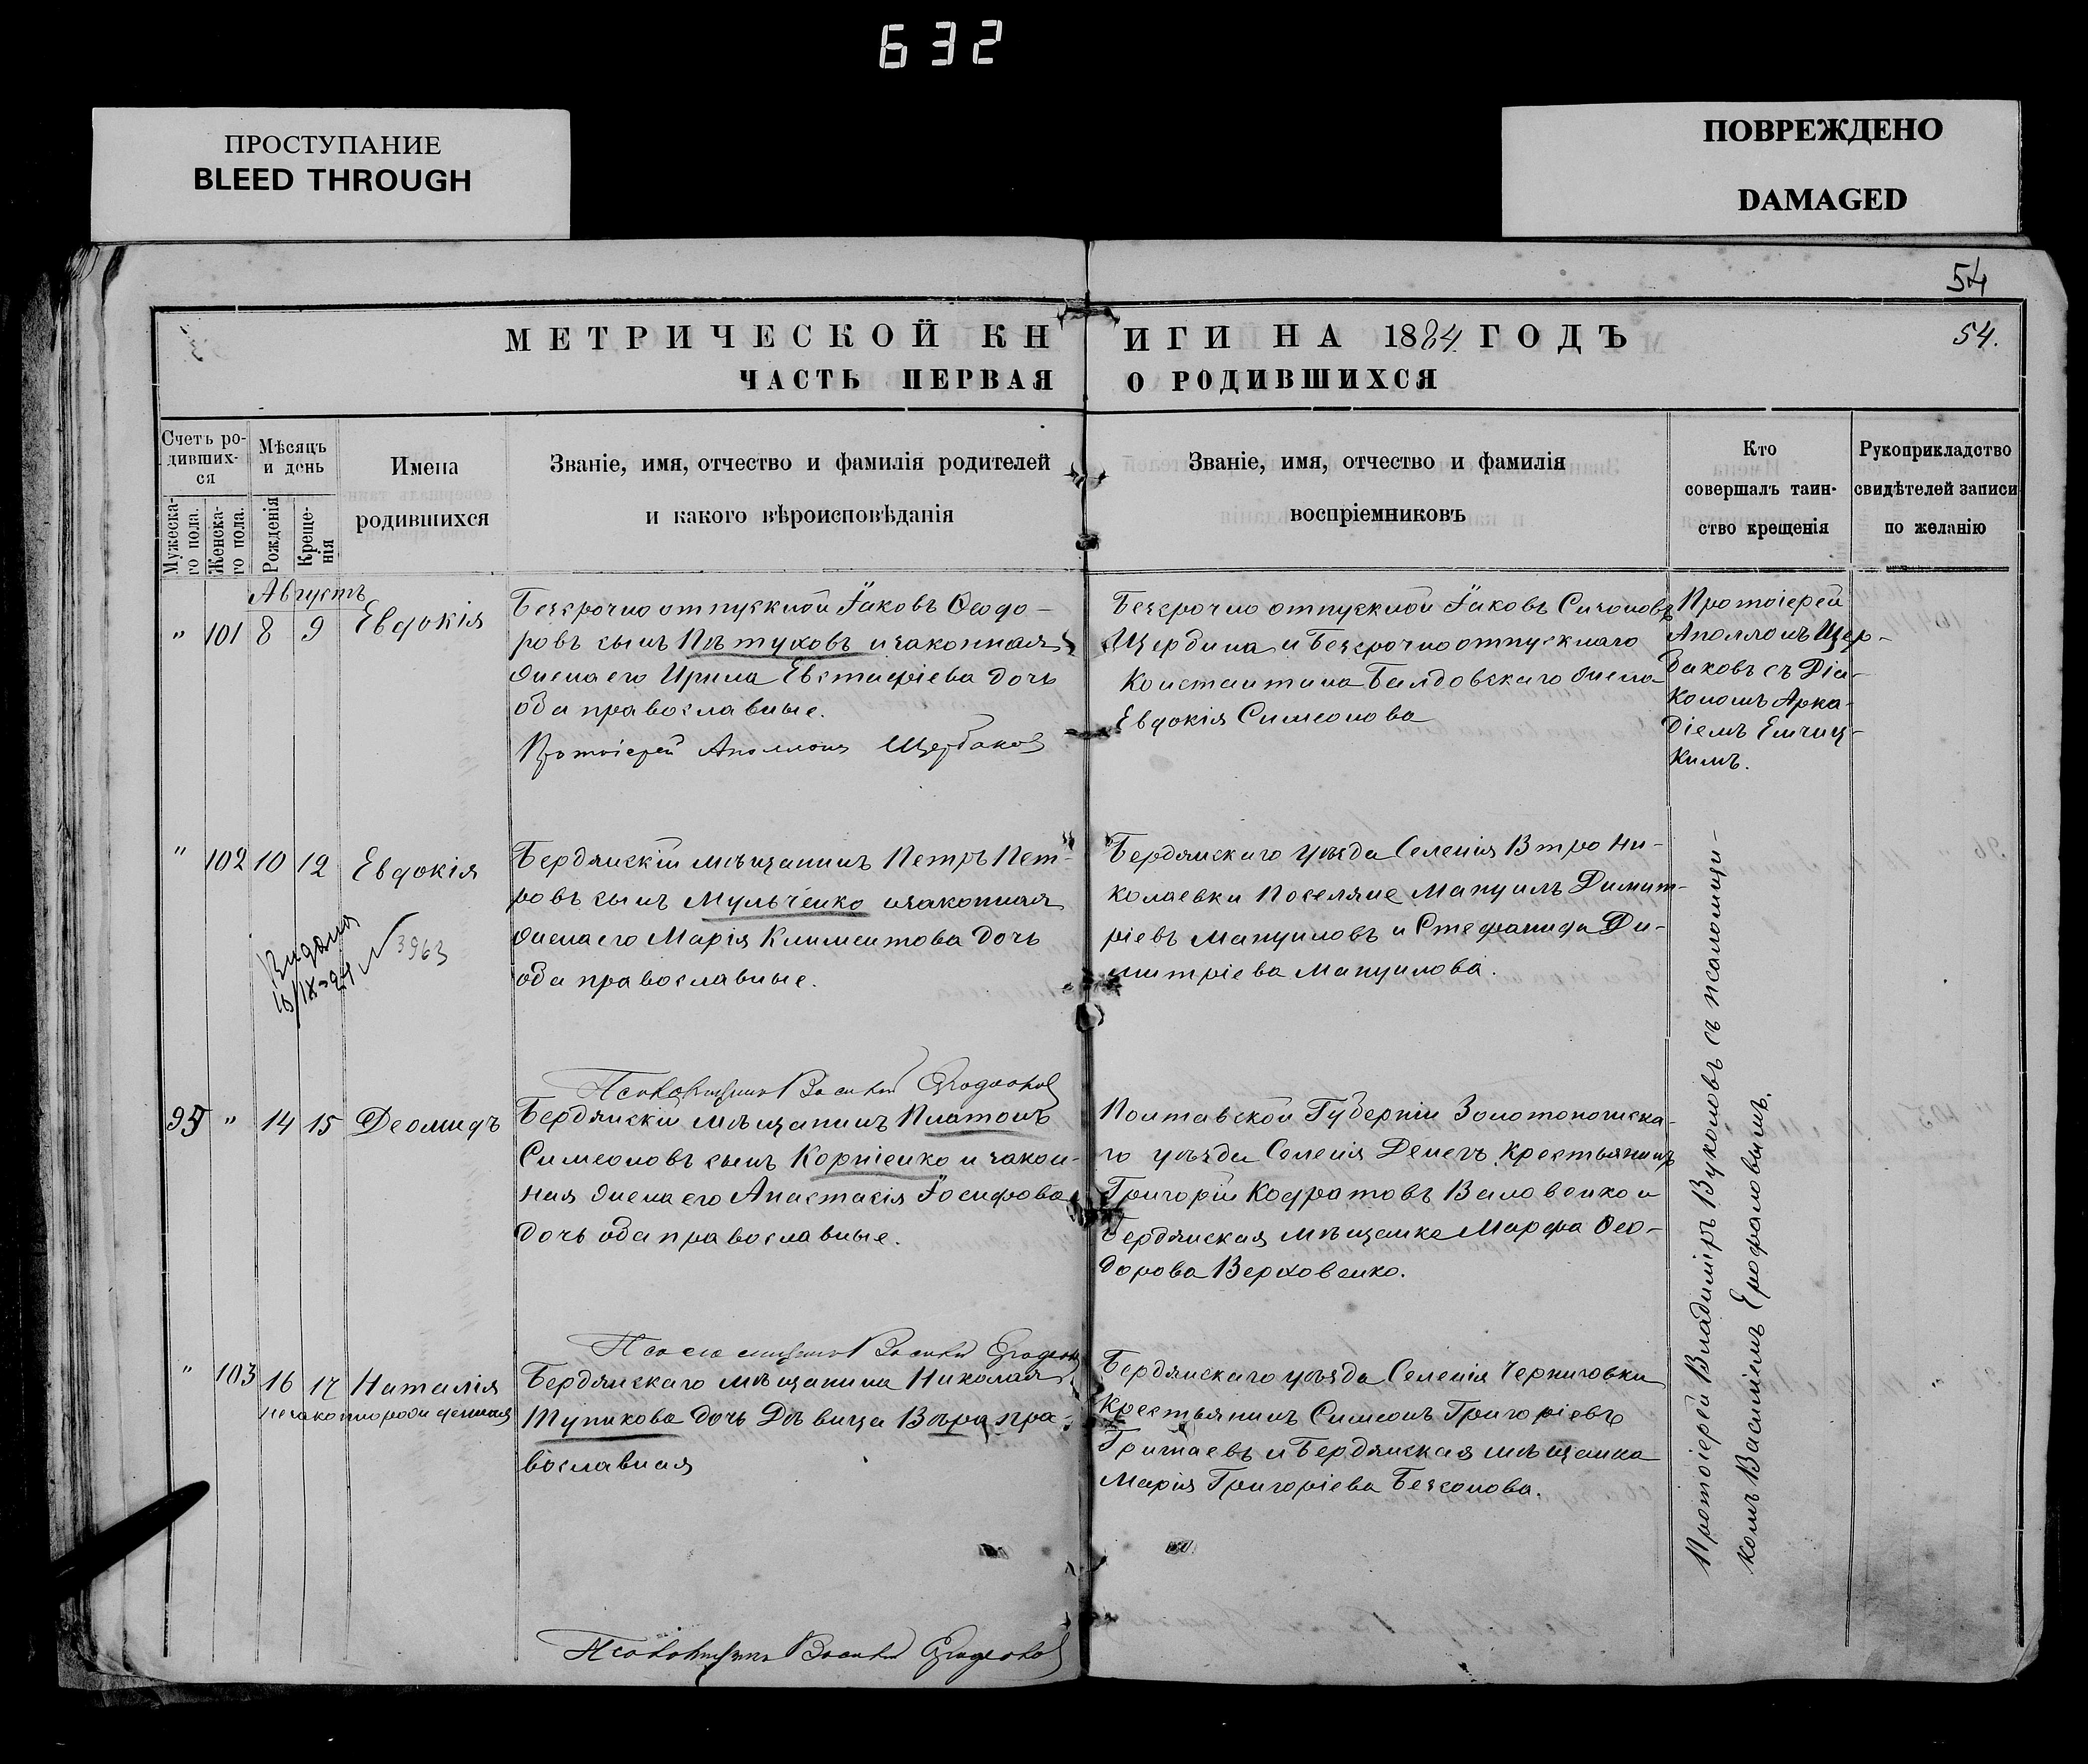 632
ПРОСТУПАНИЕ
BLEED THROUGH
ПОВРЕЖДЕНО
DAMAGED
54
54.
МЕТРИЧЕСКОЙ КНИГИ НА 1884 ГОДЪ
ЧАСТЬ ПЕРВАЯ О РОДИВШИХСЯ
Счетъ ро-
дивших-
ся
Мужеска-
го пола.
Женска-
го пола.
Мѣсяцъ
и день
Рожденія
Креще-
нія
Имена
родившихся
Званіе, имя, отчество и фамилія родителей
и какого вѣроисповѣданія
Званіе, имя, отчество и фамилія
воспріемниковъ
Кто
совершалъ таин-
ство крещенія
Рукоприкладство
свидѣтелей записи
по желанію
Августъ
" 101 8 9 Евдокія
Безсрочно отпускной Іаковъ Ѳеодо-
ровъ сынъ Пѣтуховъ и законная
жена его Ирина Евстафіева дочь
оба православные.
Протоіерей Аполлонъ Щербаковъ
Безсрочно отпускной Іаковъ
Щербина и Безсрочноотпускнаго
Константина жена
Евдокія Симеонова
Протоіерей
Аполлонъ Щер-
баковъ съ Діа-
кономъ Арка-
діемъ
кимъ.
" 102 10 12 Евдокія
Бердянскій мѣщанинъ Петръ Пет-
ровъ сынъ Мульченко и законная
жена его Марія Климентова дочь
оба православные.
3963
Бердянскаго уѣзда Селенія Втро Ни-
колаевки Поселяне Мануилъ Димит-
ріевъ Мануиловъ и Стефанида Ди-
митріева Мануилова.
Псаломщикъ Василій
95 " 14 15 Деомидъ
Бердянскій мѣщанинъ Платонъ
Симеоновъ сынъ Корніенко и закон-
ная жена его Анастасія Іосифова
дочь оба православные.
Полтавской Губерніи Золотоношска-
го уѣзда Селенія Денегъ Крестьянинъ
Григорій Кодратовъ и
Бердянская мѣщанка Марфа Ѳео-
дорова Верховенко.
Псаломщикъ Василій
" 103 16 17 Наталія
незаконнорожденная
Бердянскаго мѣщанина Николая
Тупикова дочь Дѣвица Вѣра пра-
вославная
Бердянскаго уѣзда Селенія Черниговки
Крестьянинъ Симеонъ Григоріевъ
и Бердянская мѣщанка
Марія Григоріева
Протоіерей Владиміръ Вуколовъ съ псаломщи-
комъ Василіемъ
Псаломщикъ Василій